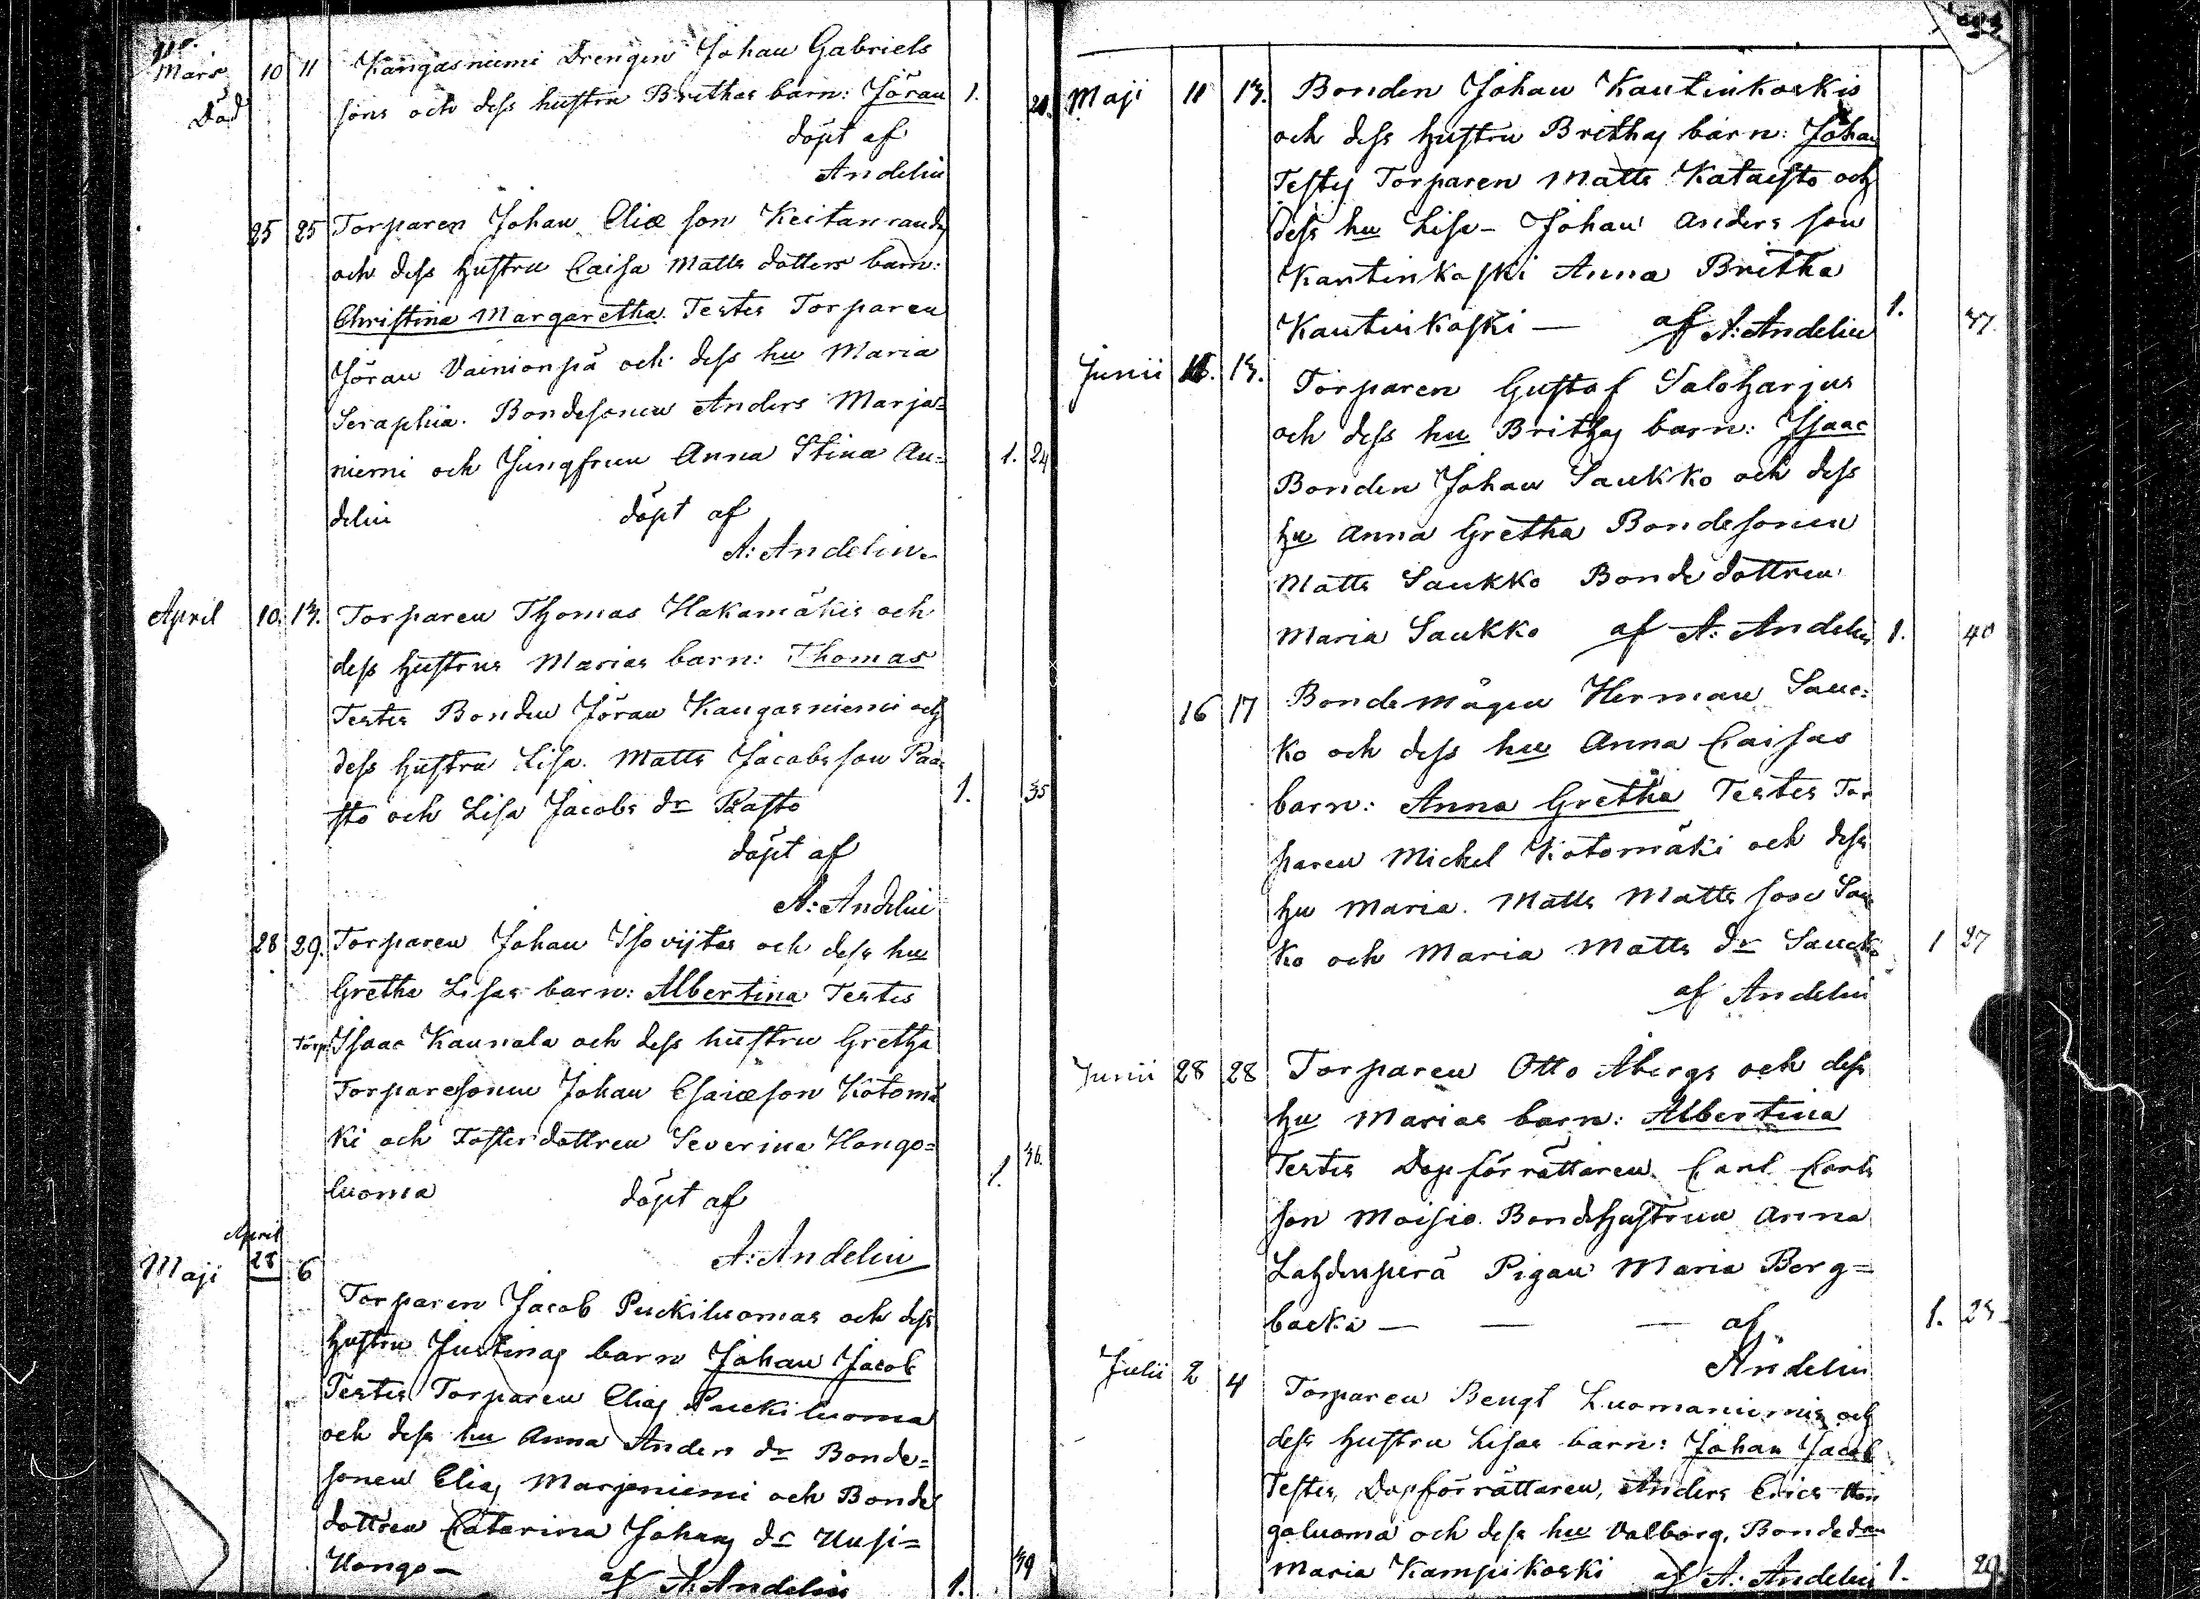 Mars 10 11 Kangasniemi Drengen Johan Gabriels
Död sons och dess hustru Brithas barn: Jöran 1. 21.
döpt af
Andelin
25 25 Torparen Johan Eliæ son Keitanrandas
och dess hustru Caisa Matts dotters barn:
Christina Margaretha. Testes Torparen
Jöran Vainionpä och dess hu Maria
Seraphia. Bondesonen Anders Marja=
niemi och Jungfrun Anna Stina An= 1. 24
delin döpt af
A: Andelin
April 10. 13. Torparen Thomas Hakamäkis och
dess hustrus Marias barn: Thomas
Testes Bonden Jöran Kangasniemi och
dess hustru Lisa. Matts Jacobsson Paa=
sto och Lisa Jacobs dr Pasto 1. 35
döpt af
A: Andelin
28 29. Torparen Johan Isovijtas och dess hu
Gretha Lisas barn: Albertina Testes
Torp. Isaac Kaunala och dess hustru Gretha
Torparesonen Johan Esaiæson Kotomä
ki och Fosterdottren Severina Hongo=
luoma döpt af 1. 36.
A: Andelin
April
Maji 28 6
Torparen Jacob Puckiluomas och dess
hustru Justinas barn Johan Jacob
Testes Torparen Elias Puckiluoma
och dess hu Anna Anders dr Bonde=
sonen Elias Marjeniemi och Bonde
dottren Catarina Johans dr Uusi=
Hongo— af A: Andelin 1. 39
Maji 11 13. Bonden Johan Kautinkoskis
och dess hustru Brithas barn: Johan
Testes Torparen Matts Kataisto och
dess hu Lisa— Johan Anders son
Kautinkoski Anna Britha
Kautinkoski — af A: Andelin 1. 37.
Junii 13. Torparen Gustaf Saloharjus
och dess hu Brithas barn: Isaac
Bonden Johan Saukko och dess
hu Anna Gretha Bondesonen
Matts Saukko Bonde dottren
Maria Saukko af A: Andelin 1. 40
16 17 Bondemågen Herman Sauc=
ko och dess hu Anna Caisas
barn: Anna Gretha Testes Tor
paren Mickel Kotomäki och dess
hu Maria. Matts Matts son Sauc
ko och Maria Matts dr Saucko 1 27
af Andelin
Junii 28 28 Torparen Otto Åbergs och dess
hu Marias barn: Albertina
Testes Dopförrättaren. Carl Carls
son Moisio. Bondehustrun Anna
Lahdenperä Pigan Maria Berg=
backa — — — af 1.
Andelin
Julii 2 4 Torparen Bengt Luomaniemis och
dess hustru Lisas barn: Johan Jacob
Testes, Dopförrättaren, Anders Erics Hon
goluoma och dess hu Valborg, Bondedn
Maria Kampikoski af A: Andelin 1. 29.